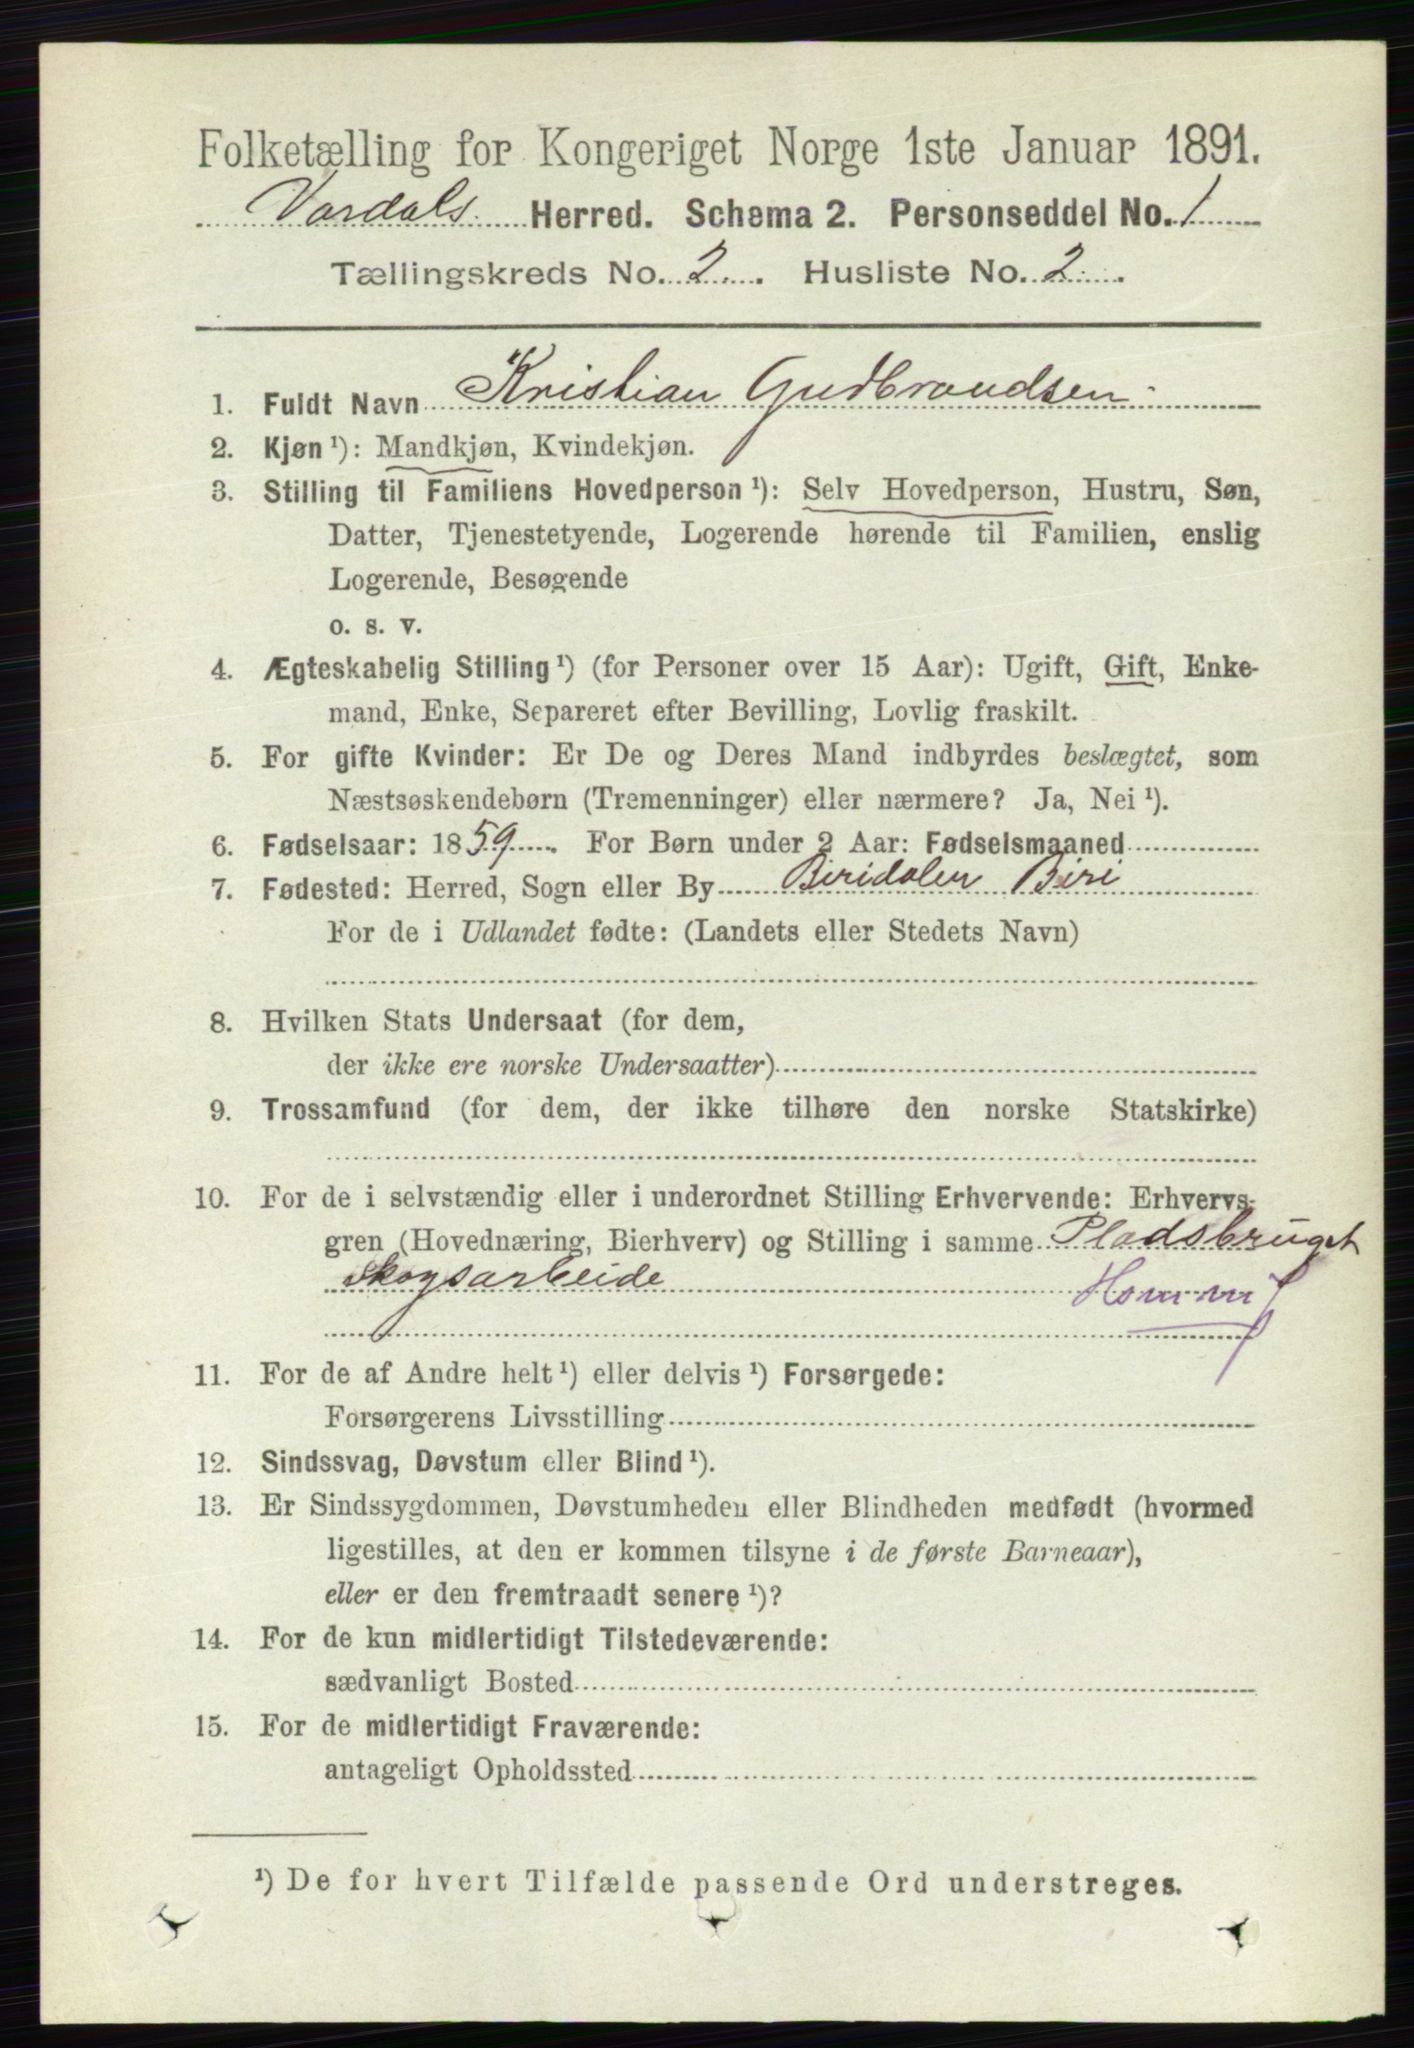 Folketælling for Kongeriget Norge 1ste Januar 1891.
Vardals Herred. Schema 2. Personseddel No. 1
Tællingskreds No. 2. Husliste No. 2.
1. Fuldt Navn Kristian Gudbrandsen
2. Kjøn ¹): Mandkjøn, Kvindekjøn.
3. Stilling til Familiens Hovedperson ¹): Selv Hovedperson, Hustru, Søn,
Datter, Tjenestetyende, Logerende hørende til Familien, enslig
Logerende, Besøgende
o. s. v.
4. Ægteskabelig Stilling ¹) (for Personer over 15 Aar): Ugift, Gift, Enke-
mand, Enke, Separeret efter Bevilling, Lovlig fraskilt.
5. For gifte Kvinder: Er De og Deres Mand indbyrdes beslægtet, som
Næstsøskendebørn (Tremenninger) eller nærmere? Ja, Nei ¹).
6. Fødselsaar: 1859. For Børn under 2 Aar: Fødselsmaaned
7. Fødested: Herred, Sogn eller By Biridalen Biri
For de i Udlandet fødte: (Landets eller Stedets Navn)
8. Hvilken Stats Undersaat (for dem,
der ikke ere norske Undersaatter)
9. Trossamfund (for dem, der ikke tilhøre den norske Statskirke)
10. For de i selvstændig eller i underordnet Stilling Erhvervende: Erhvervs-
gren (Hovednæring, Bierhverv) og Stilling i samme Pladsbruget
Skogsarbeide
11. For de af Andre helt ¹) eller delvis ¹) Forsørgede:
Forsørgerens Livsstilling
12. Sindssvag, Døvstum eller Blind ¹).
13. Er Sindssygdommen, Døvstumheden eller Blindheden medfødt (hvormed
ligestilles, at den er kommen tilsyne i de første Barneaar),
eller er den fremtraadt senere ¹)?
14. For de kun midlertidigt Tilstedeværende:
sædvanligt Bosted
15. For de midlertidigt Fraværende:
antageligt Opholdssted
¹) De for hvert Tilfælde passende Ord understreges.